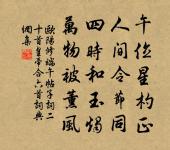 午位星杓正
人間令節同
四時和玉燭
萬物被薰風
歐陽修端午帖子詞二
十首皇帝合六首詞典
網集